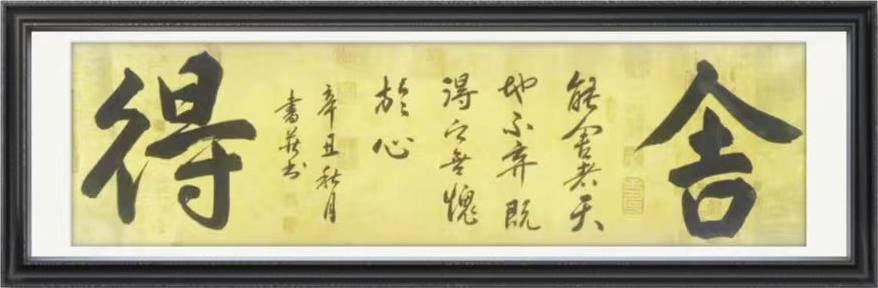 舍
能舍者天
地不弃既
得之无愧
於心
辛丑秋月
书于
得